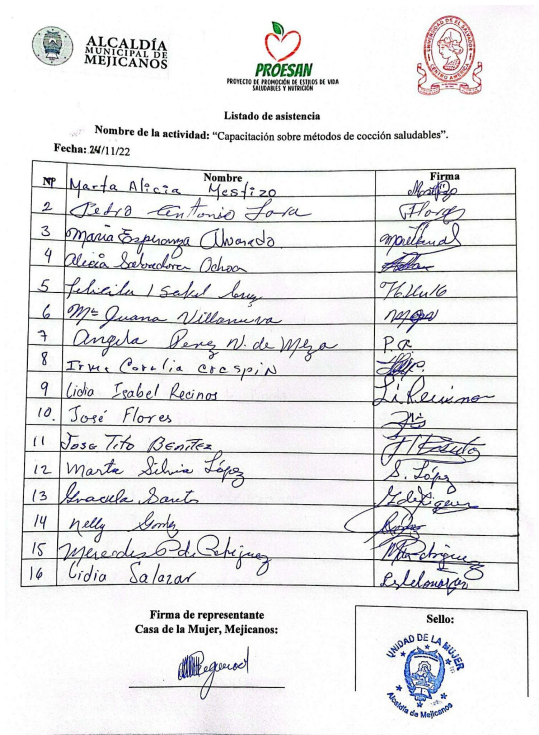 ALCALDÍA
MUNICIPAL DE
MEJICANOS
PROESAN
PROYECTO DE PROMOCIÓN DE ESTILOS DE VIDA
SALUDABLES Y NUTRICIÓN
UNIVERSIDAD DE EL SALVADOR
CENTRO AMERICA
Listado de asistencia
Nombre de la actividad: “Capacitación sobre métodos de cocción saludables”.
Fecha: 24/11/22
Nº Nombre Firma
Marta Alicia Mestizo
2 Pedro Antonio Jara Flores
3 María Esperanza Alvarado
4 Alicia Salvadora Ochoa
5 Isabel
6 Mª Juana Villanueva
7 Angela Perez V. de Meza P.A
8 Irma Coralia crespin
9 Lidia Isabel Recinos L. Recinos
10. José Flores
11 Jose Tito Benitez
12 Marta Silvia López S. López
13 Graciela
14 Nelly
15 Mercedes Rodriguez
16 Lidia Salazar
Firma de representante
Casa de la Mujer, Mejicanos:
Sello:
UNIDAD DE LA MUJER
Alcaldía de Mejicanos